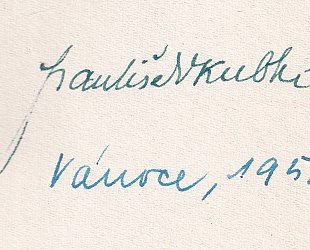 František Kubka
Vánoce, 195